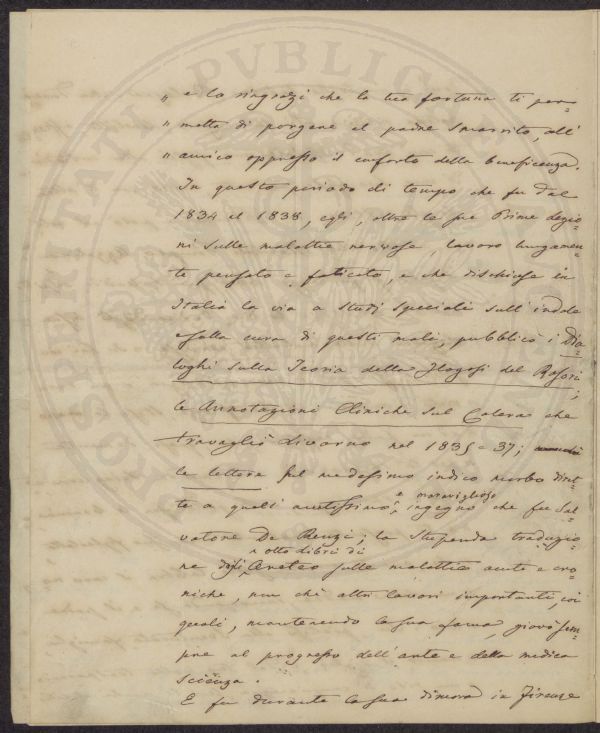 PROSPERITATI PVBLICAE
" e lo ringrazi che la tua fortuna ti per-
" metta di porgere al padre smarrito, all'
" amico oppresso il conforto della beneficenza.
In questo periodo di tempo che fu dal
1834 al 1838, egli, oltre le sue Prime Lezio-
ni sulle malattie nervose, lavoro lungamen-
te pensato e faticato, e che dischiuse in
Italia la via a studi speciali sull'indole
e sulla cura di questi mali, pubblicò i Dia-
loghi sulla Teoria della Flogosi del Rasori;
le Annotazioni Cliniche sul Colera che
travagliò Livorno nel 1835=37;
le lettere sul medesimo indico morbo diret-
te a quell' acutissimo e maraviglioso ingegno che fu Sal-
vatore De Renzi; la stupenda traduzio-
ne degli otto libri di Areteo sulle malattie acute e cro-
niche, non chè altri lavori importanti, coi
quali, mantenendo la sua fama, giovò sem-
pre al progresso dell'arte e della medica
scienza.
E fu durante la sua dimora in Firenze